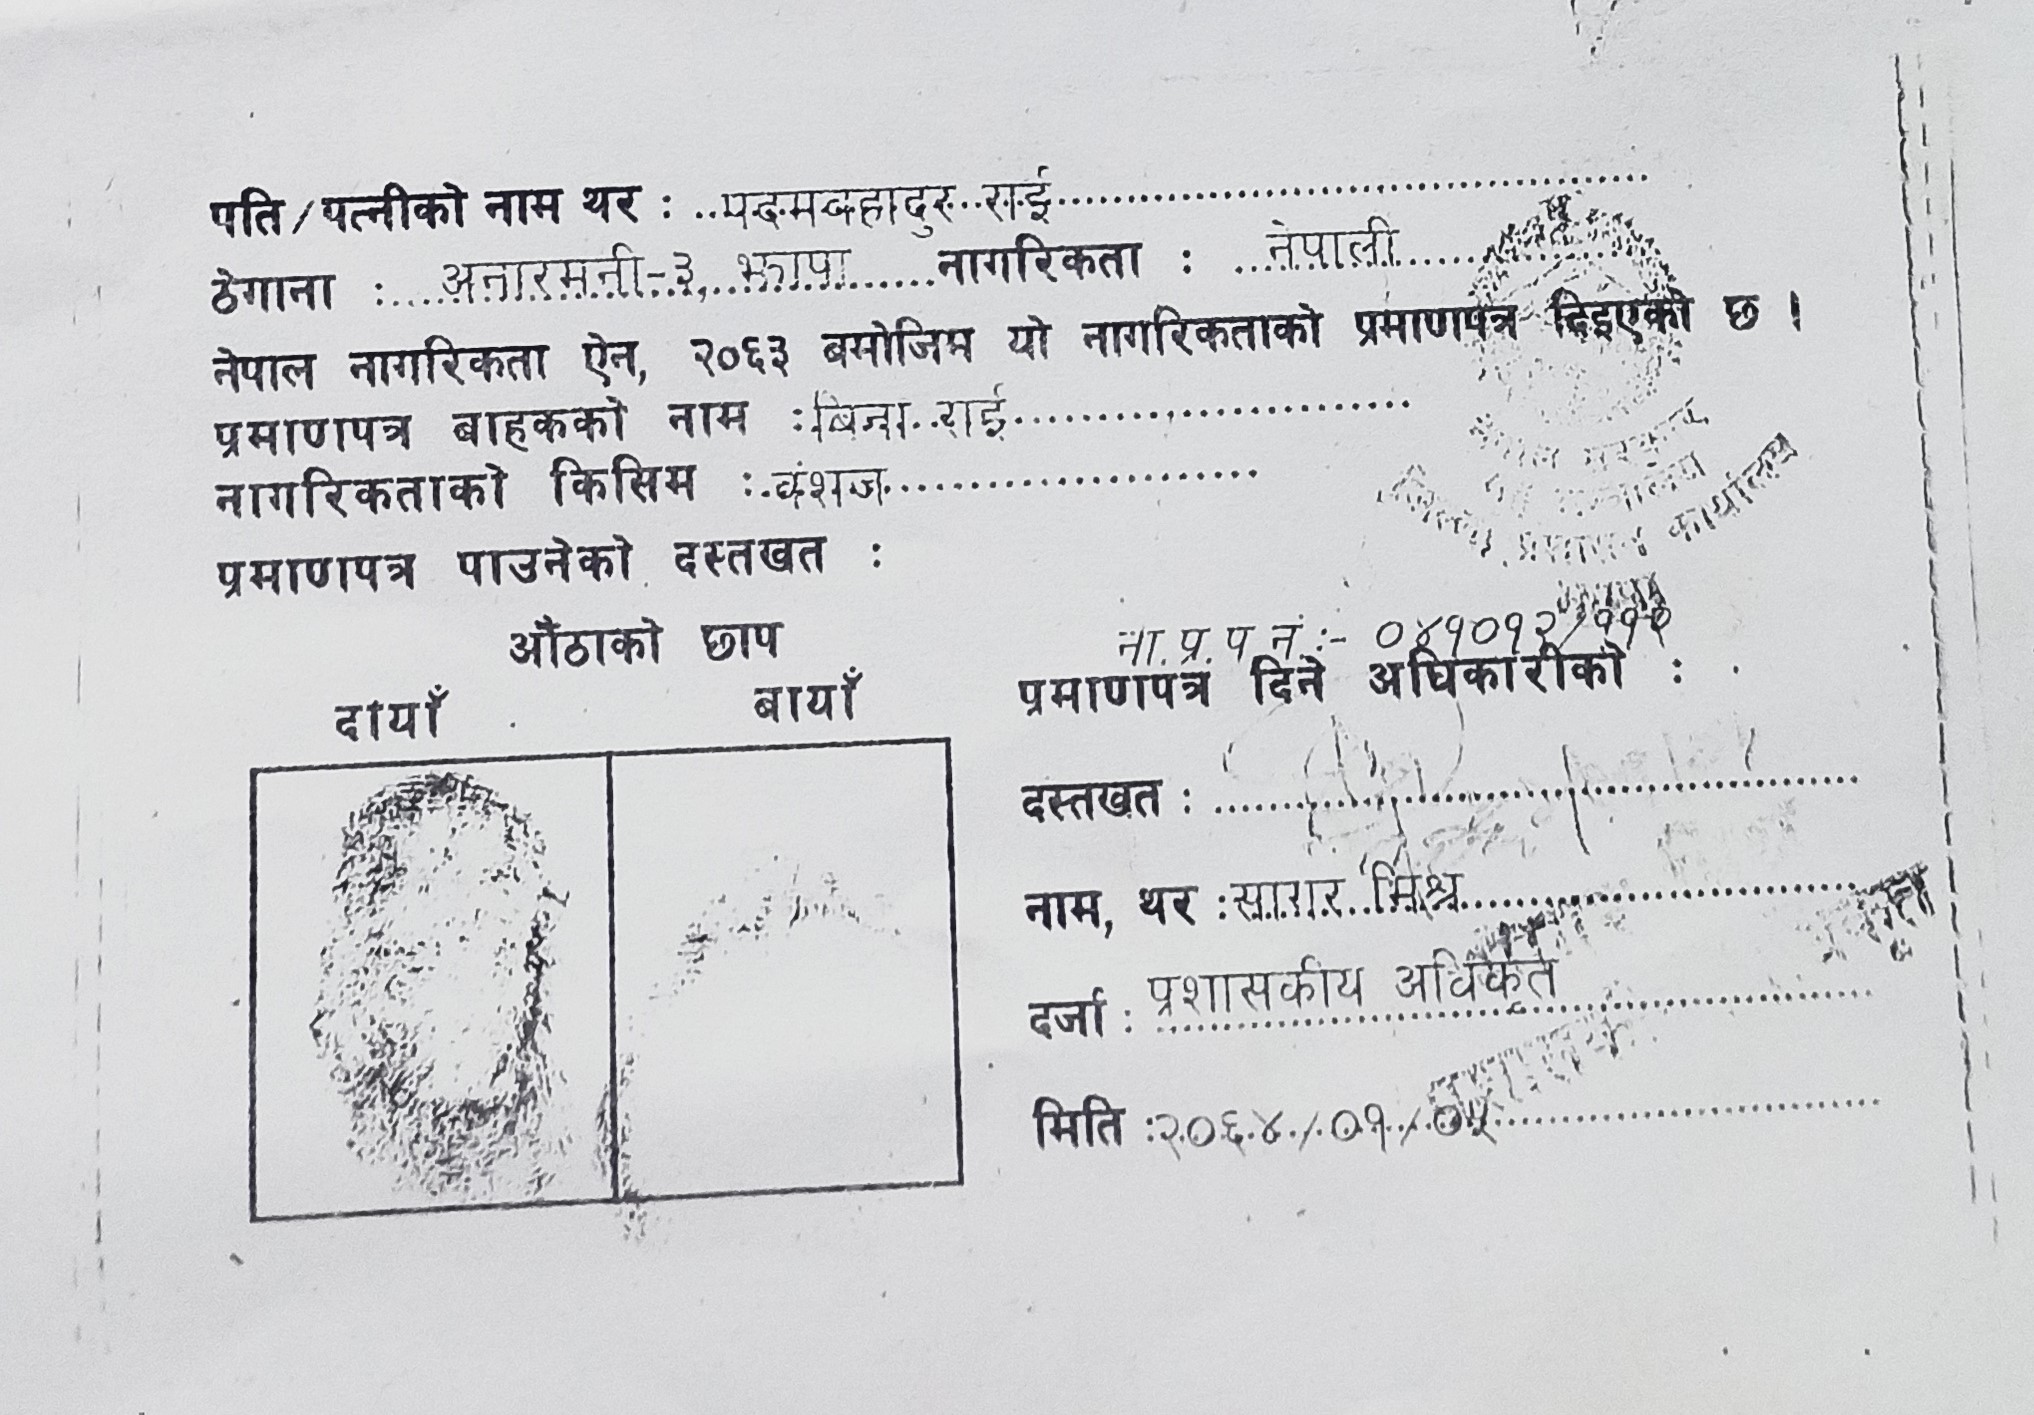 पति/पत्नीको नाम थर : पदमबहादुर राई
ठेगाना : अनारमनी-३, झापा नागरिकता : नेपाली
नेपाल नागरिकता ऐन, २०६३ बमोजिम यो नागरिकताको प्रमाणपत्र दिइएको छ ।
प्रमाणपत्र बाहकको नाम : बिना राई
नागरिकताको किसिम : वंशज
प्रमाणपत्र पाउनेको दस्तखत :
औंठाको छाप
दायाँ बायाँ
ना.प्र.प.नं.:- ०४१०१२/
प्रमाणपत्र दिने अधिकारीको :
दस्तखत :
नाम, थर : सागर मिश्र
दर्जा : प्रशासकीय अधिकृत
मिति : २०६४/०१/०५
कार्यालय